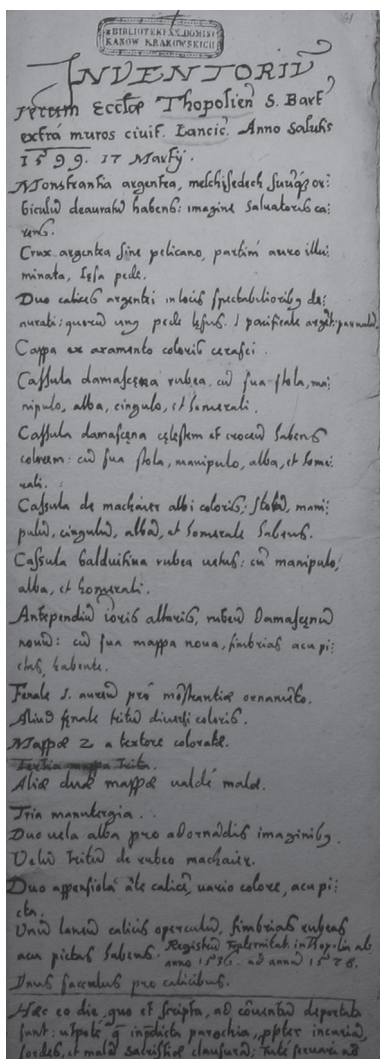 61
z BIBLIOTEKI XX. DOMINI
KANÓW KRAKOWSKICH
INVENTORIŨ
rerum Eccłæ Thopolien̄ S. Bart̄
extra muros ciuit. Lancic. Anno Salutis
1599. 17 Martÿ.
Monstrantia argentea, melchisedech or:
biculũ deauratũ habens: imagine Saluatoris ca:
rens.
Crux argentea sine pelicano, partim auro illu:
minata, lęsa pede.
Duo calices argentei in locis spectabilioribꝫ de:
aurati; quorũ unꝰ pede lęsus. 1 pacificale
Cappa ex axamento coloris cerasei.
Cassula damascena rubea, cũ sua stola, ma:
nipulo, alba, cingulo, et homerali.
Cassula damascena cęlestem et croceũ habens
colorem: cũ sua stola, manipulo, alba, et home:
rali.
Cassula de machaier albi coloris; stolã, mani:
pulũ, cingulũ, albã, et homerale habens.
Cassula balduikina rubea uetus: cũ manipulo,
alba, et homerali.
Antependiũ altaris, rubeũ damascenũ
nouũ: cũ sua mappa noua, fimbrias acu pi:
ctas, habente.
Fenale 1. aureũ pro mõstrantiæ ornamẽto.
Aliud fenale tritũ diuersi coloris.
Mappæ 2 a textore coloratæ.
Tertia mappa trita.
Aliæ duæ mappæ ualdè malæ.
Tria manutergia.
Duo uela alba pro adornãdis imaginibꝫ.
Velũ tritũ de rubeo machaier.
Duo appensiola ãte calicẽ, uario colore, acu pi:
cta.
Unũ laneũ calicis operculũ, fimbrias rubeas
acu pictas habens. Registrũ Fraternitat. in Thopolia ab
anno 1536. ad annũ 1578.
Unus sacculus pro calicibus.
Hæc eo die, quo et scripta, ad cõuentũ deportata
sunt: utpote in parochia, ꝓpter incuriã,
sordes, et malã sacristiæ clausurã.